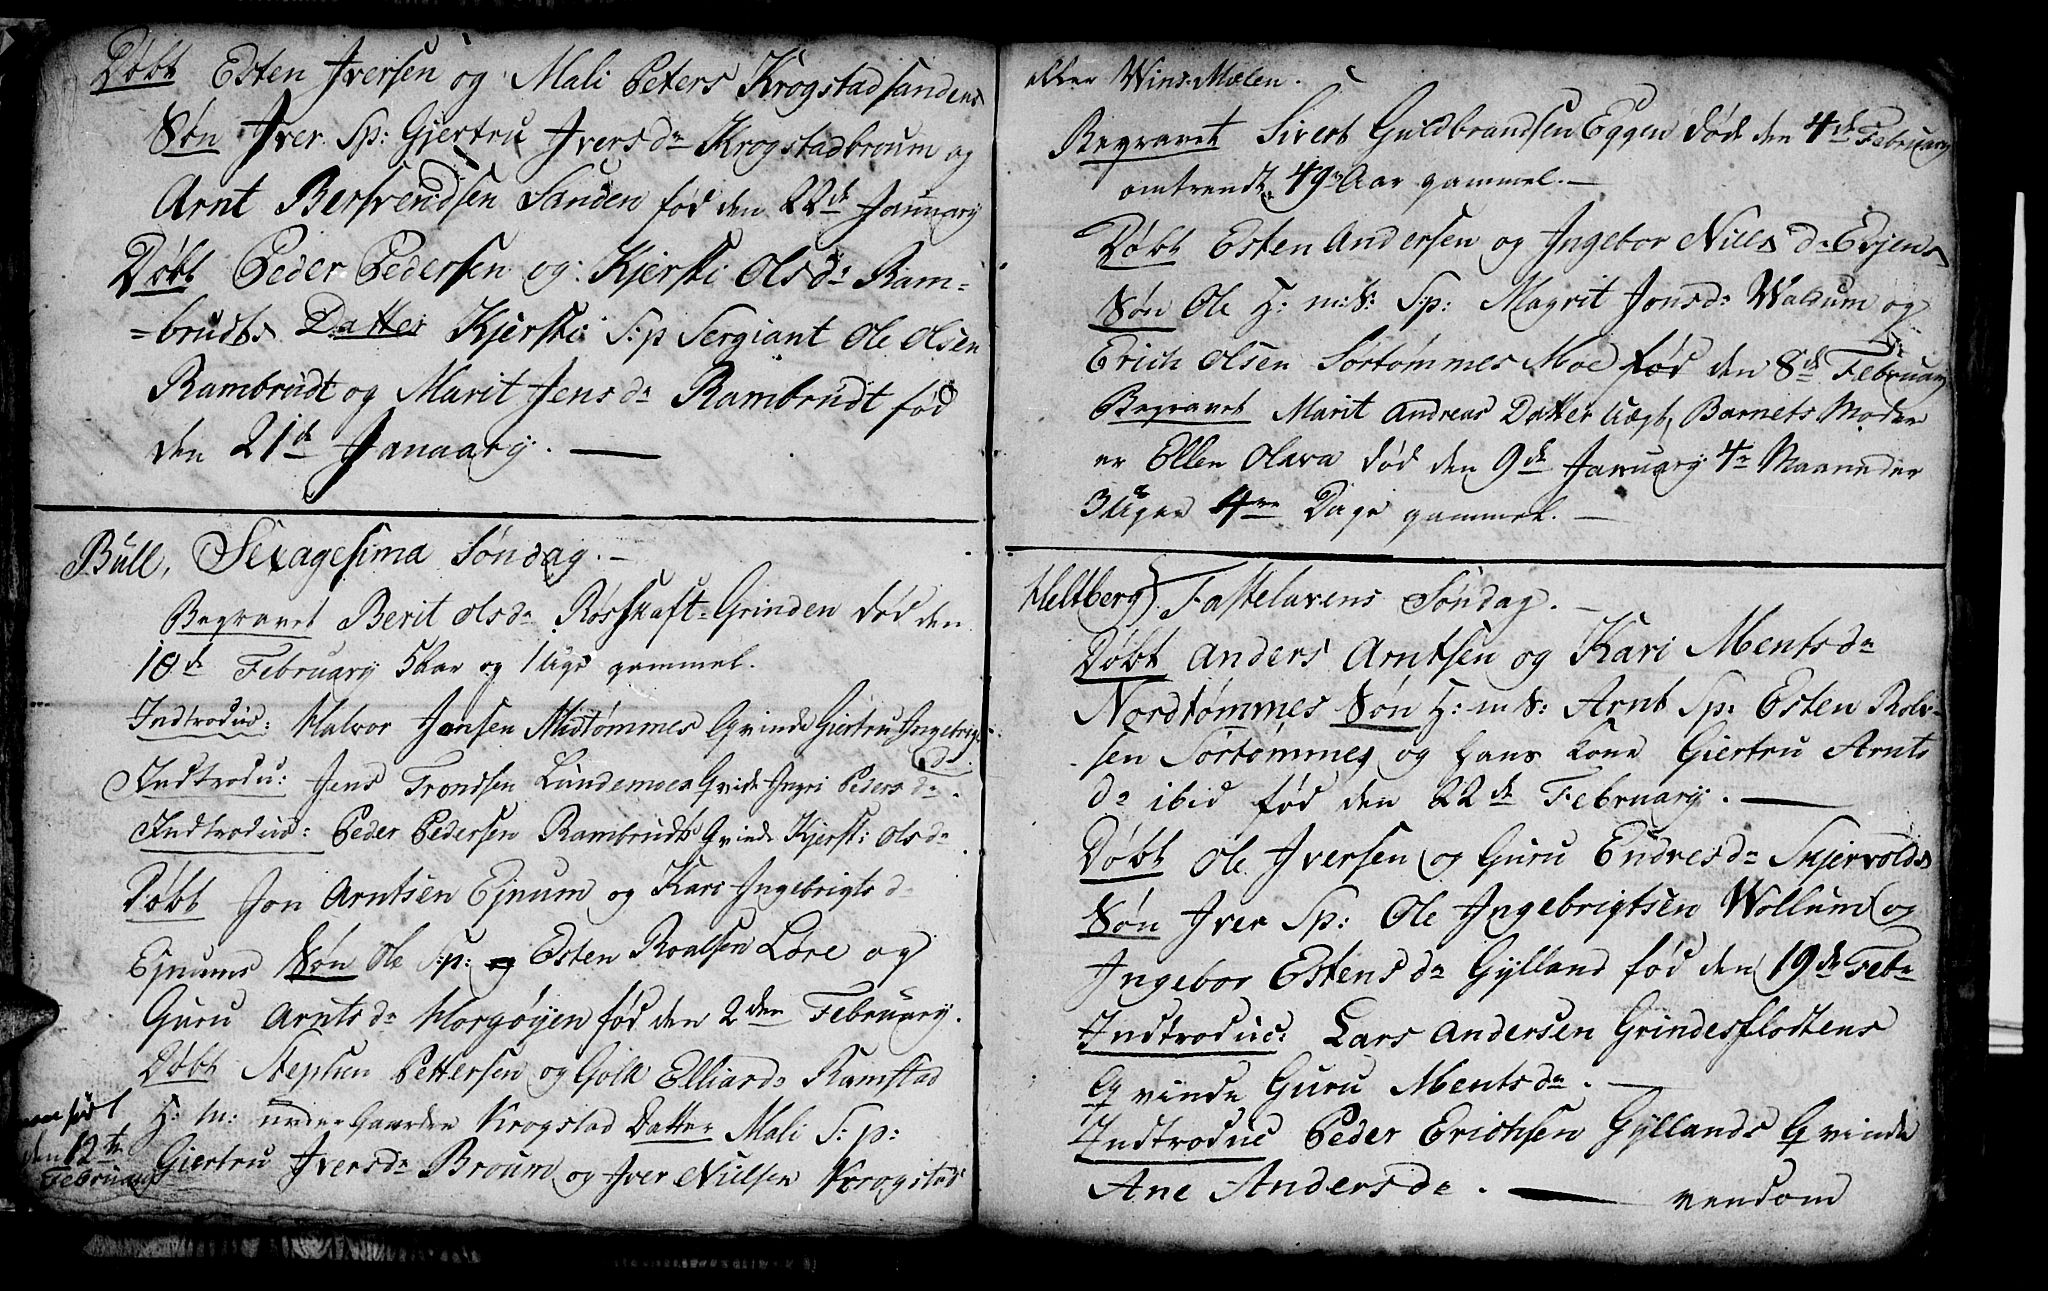 Døbt Esten Iversen og Mali Peters Krogstadsandens
Søn Iver Sp: Giertru Ivers dr Krogstadbroum og
Arnt Bersvendsen Sanden fød den 22de January
Døbt Peder Pedersen og Kjersti Ols dr Ram-
-brudts Datter Kjersti S:p Sergiant Ole Olsen
Rambrudt og Marit Jens dr Rambrudt fød
den 21de January. —
Bull, Sexagesima Søndag. —
Begravet Berit Ols dr Røsskaft-Grinden død den
10de February 5 Aar og 1 Uge gammel.
Indtroduc: Halvor Jensen Midtømmes Qvinde Giertru Ingebrigt
dr.
Indtrodu: Jens Trondsen Lundemoes Qvinde Ingri Peders dr.
Indtroduc: Peder Pedersen Rambrudts Qvinde Kjerst: Ols dr
Døbt Jon Arntsen Ejnum og Kari Ingebrigts d
Ejnums Søn Ole S:p: og Esten Roalsen Løre og
Guru Arnts dr Horgøyen fød den 2den February.
Døbt Stephen Pettersen og Golla Elliard dr Ramstad
H: m: under Gaarden Krogstad Datter Mali S: p:
Giertru Ivers dr Broum og Iver Nillsen Krogstad
fød
den 12te
February
eller Wins-Mælen.
Begravet Sivert Guldbrandsen Eggen død den 4de February
omtrendt 49 Aar gammel. —
Døbt Esten Andersen og Ingebor Nills dr Evjens
Søn Ole H: m: S: S:p: Magrit Jons dr Waldum og
Erich Olsen Sørtømmes Moe fød den 8de February
Begravet Marit Andreas Datter Uægt, Barnets Moder
er Ellen Olava død den 9de January 4r Maaneder
3 Uger 4re Dage gammel. —
Heltberg. Fastelavens Søndag. —
Døbt Anders Arntsen og Kari Ments dr
Nordtømmes Søn H: m S: Arnt Sp: Esten Rolv-
sen Sørtømmes og hans Kone Giertru Arnts
dr ibid fød den 22de February. —
Døbt Ole Iversen og Guru Endres dr Skjervolds
Søn Iver Sp: Ole Ingebrigtsen Wollum og
Ingebor Estens dr Gylland fød den 19de Febr
Indtroduc: Lars Andersen Grindesflodtens
Qvinde Guru Ments dr. —
Indtroduc Peder Erichsen Gyllands Qvinde
Ane Anders dr. — vendom